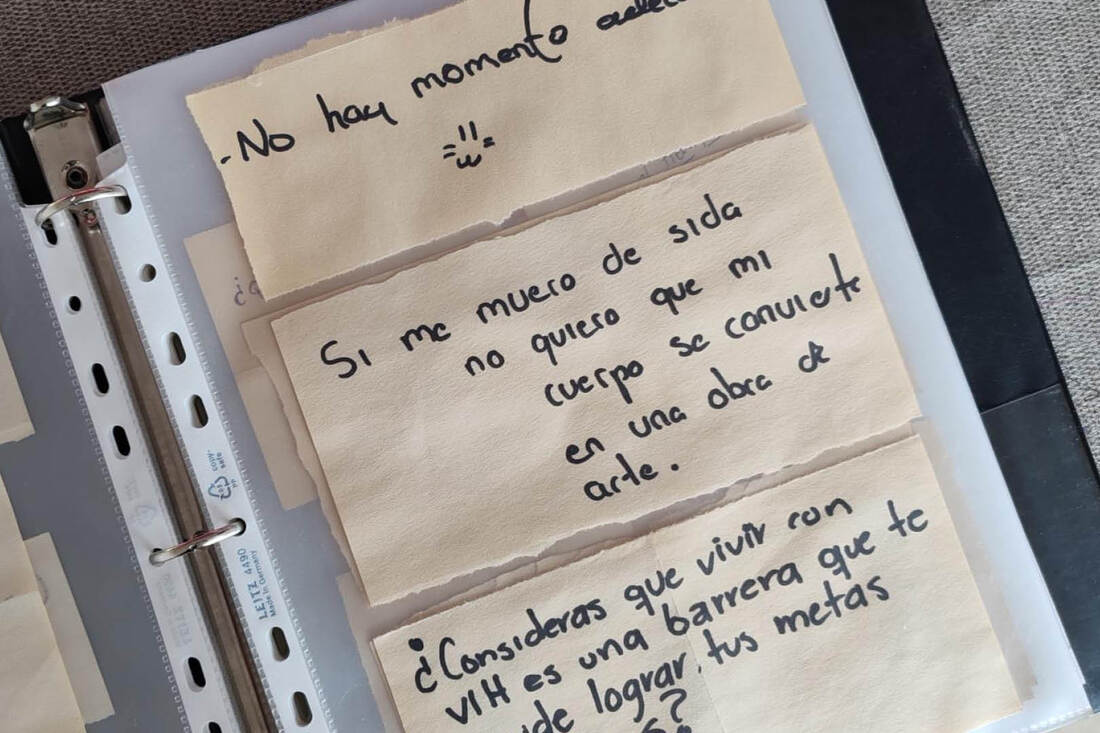 .No hay momento
Si me muero de sida
no quiero que mi
cuerpo se convierte
en una obra de
arte.
¿Consideras que vivir con
VIH es una barrera que te
lograr tus metas
?
LEITZ 4490
Made in Germany
copy
safe
PP